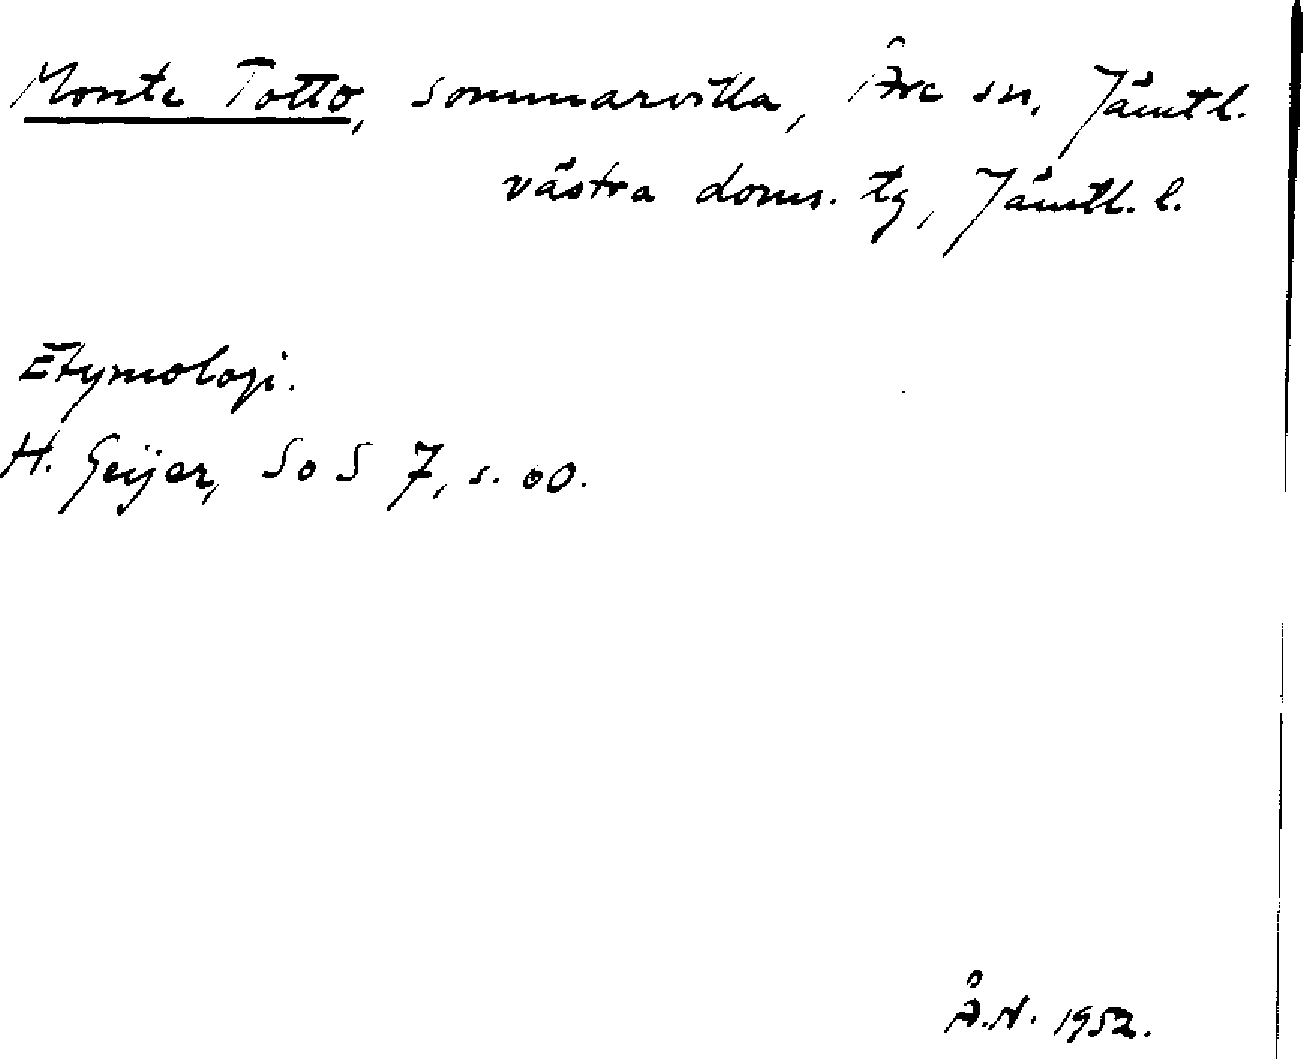 Monte Totto, sommarvilla, Åre sn, Jämtl.
västra doms. tg, Jämtl. l.
Etymologi.
H. Geijer, SoS 7, s. 60.
Å.N. 1952.